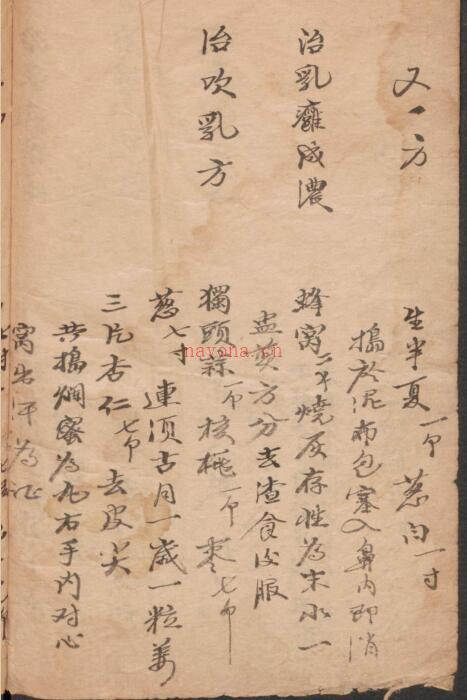 又一方
生半夏一个 葱白一寸
搗於泥布包塞入鼻内即消
治乳癰成濃
蜂窝二个燒灰存性為末水一
盅煎方分去渣食後服
治吹乳方
獨頭蒜一个核桃一个枣七个
葱七寸 連須古月一歲一粒姜
三片杏仁七个去皮尖
共搗爛蜜為丸右手内对心
窝出汗為止
nayona.cn